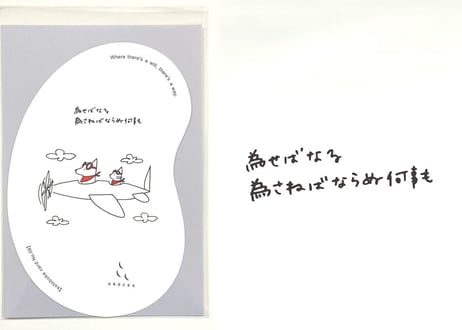 Where there's a will, there's a way.
為せばなる
為さねばならぬ何事も
為せばなる
為さねばならぬ何事も